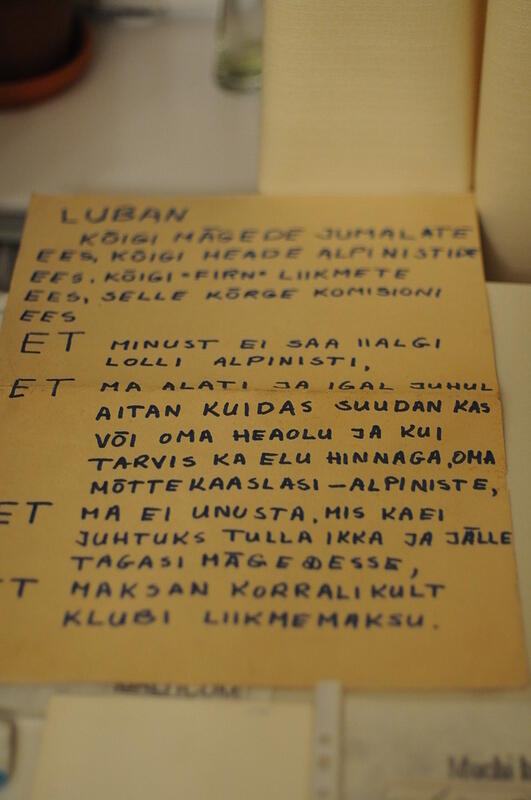 LUBAN
KÕIGI MÄGEDE JUMALATE
EES, KÕIGI HEADE ALPINISTIDE
EES, KÕIGI "FIRN" LIIKMETE
EES, SELLE KÕRGE KOMISIONI
EES
ET MINUST EI SAA IIALGI
LOLLI ALPINISTI,
ET MA ALATI JA IGAL JUHUL
AITAN KUIDAS SUUDAN KAS
VÕI OMA HEAOLU JA KUI
TARVIS KA ELU HINNAGA, OMA
MÕTTEKAASLASI-ALPINISTE,
ET MA EI UNUSTA, MIS KA EI
JUHTUKS TULLA IKKA JA JÄLLE
TAGASI MÄGEDESSE,
ET MAKSAN KORRALIKULT
KLUBI LIIKMEMAKSU.